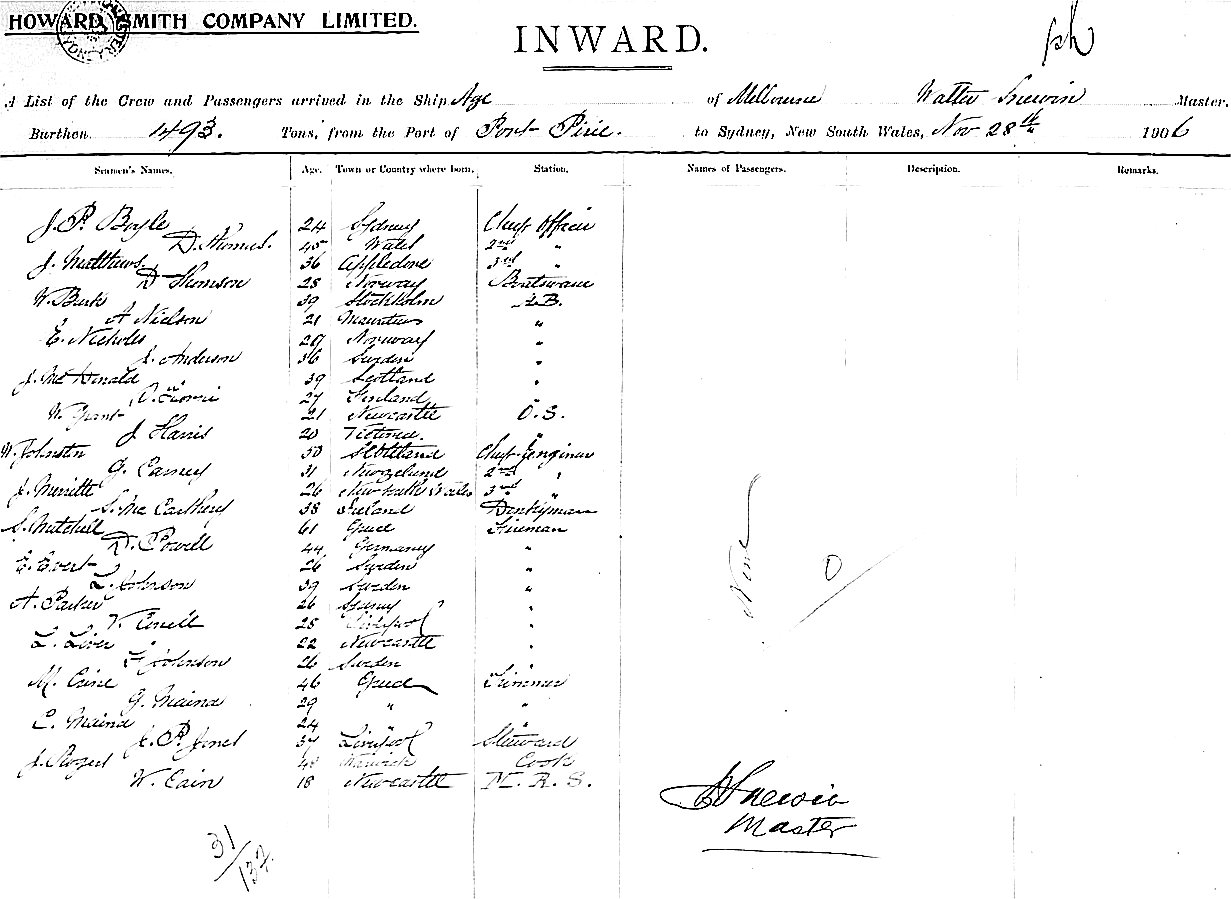 HOWARD SMITH COMPANY LIMITED.
INWARD.
A List of the Crew and Passengers arrived in the Ship Age of Melbourne Walter Snewin Master.
Burthen 1493. Tons, from the Port of Port Pirie. to Sydney, New South Wales, Nov 28th 1906
Seamen's Names. Age. Town or Country where born. Station. Names of Passengers. Description. Remarks.
J. P. Boyle 24 Sydney Chief Officer
D. Thomas. 45 Wales 2nd "
J. Matthews. 36 Appledore 3rd "
D Thomson 28 Norway Boatswain
W. Burk 39 Stockholm A.B.
A Nielson 21 Mauritius "
E. Nichols 29 Norway "
J. Anderson 36 Sweden "
J. McDonald 39 Scotland "
27 Finland
W. Grant 21 Newcastle O.S.
J Harris 20 "
W. Johnston 50 Scotland Chief Engineer
G. Carney 31 Newzeland 2nd "
J. Merrette 26 New South Wales 3rd "
S. McCarthey 38 Ireland Donkyman
S. Mitchell 61 Greece Fireman
D. Powell 44 Germany "
E. Evert 26 Sweden "
L. Johnson 39 Sweden "
A. Parker 26 Sydney "
28 Liverpool "
L. Liver 22 Newcastle "
F Johnson 26 Sweden
M. Crine 46 Greece Trimmer
G. Maina 29 " "
C. Maina 24 " "
J. P. Jones 37 Liverpool Steward
J. Roger 48 Warwick Cook
W. Cain 18 Newcastle M.R.S.
Nine
0
W Snewin
Master
31
137